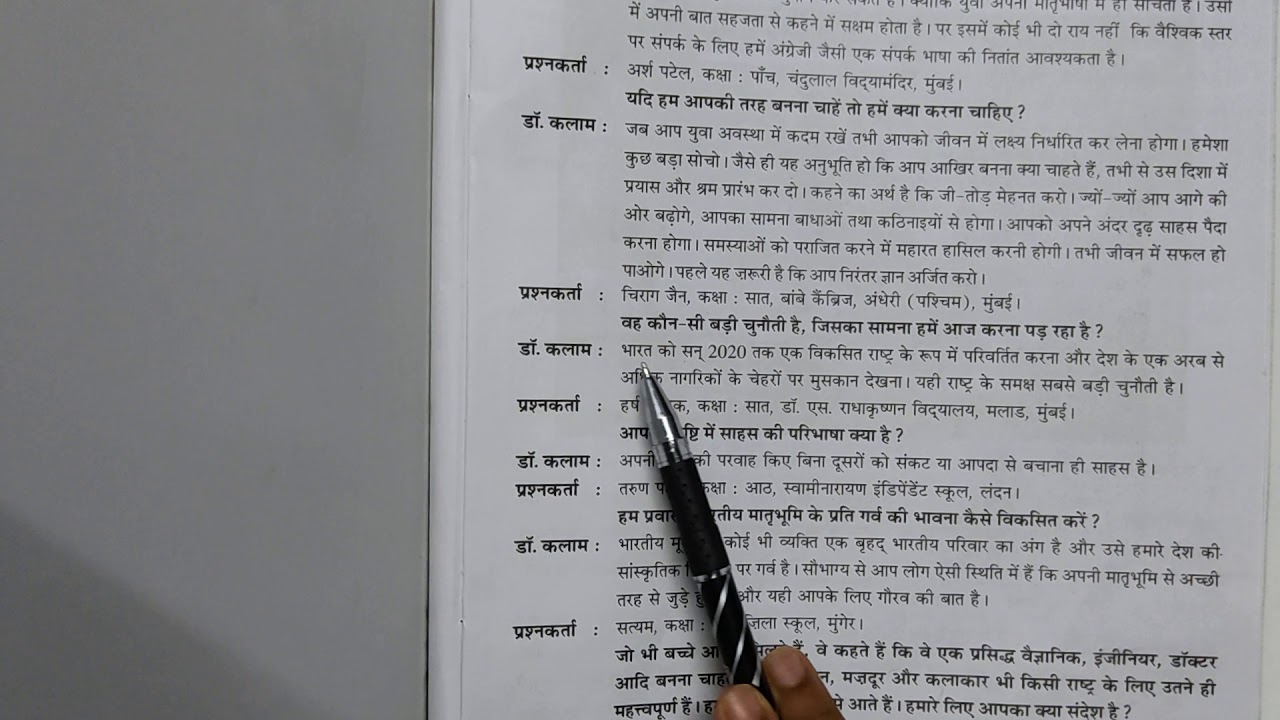 में अपनी बात सहजता से कहने में सक्षम होता है। पर इसमें कोई भी दो राय नहीं कि वैश्विक स्तर
पर संपर्क के लिए हमें अंग्रेजी जैसी एक संपर्क भाषा की नितांत आवश्यकता है।
प्रश्नकर्ता : अर्श पटेल, कक्षा : पाँच, चंदुलाल विद्यामंदिर, मुंबई।
यदि हम आपकी तरह बनना चाहें तो हमें क्या करना चाहिए ?
डॉ. कलाम : जब आप युवा अवस्था में कदम रखें तभी आपको जीवन में लक्ष्य निर्धारित कर लेना होगा। हमेशा
कुछ बड़ा सोचो। जैसे ही यह अनुभूति हो कि आप आखिर बनना क्या चाहते हैं, तभी से उस दिशा में
प्रयास और श्रम प्रारंभ कर दो। कहने का अर्थ है कि जी-तोड़ मेहनत करो। ज्यों-ज्यों आप आगे की
ओर बढ़ोगे, आपका सामना बाधाओं तथा कठिनाइयों से होगा। आपको अपने अंदर दृढ़ साहस पैदा
करना होगा। समस्याओं को पराजित करने में महारत हासिल करनी होगी। तभी जीवन में सफल हो
पाओगे। पहले यह ज़रूरी है कि आप निरंतर ज्ञान अर्जित करो।
प्रश्नकर्ता : चिराग जैन, कक्षा : सात, बांबे कैंब्रिज, अंधेरी (पश्चिम), मुंबई।
वह कौन-सी बड़ी चुनौती है, जिसका सामना हमें आज करना पड़ रहा है ?
डॉ. कलाम : भारत को सन् 2020 तक एक विकसित राष्ट्र के रूप में परिवर्तित करना और देश के एक अरब से
नागरिकों के चेहरों पर मुसकान देखना। यही राष्ट्र के समक्ष सबसे बड़ी चुनौती है।
प्रश्नकर्ता : हर्ष कक्षा : सात, डॉ. एस. राधाकृष्णन विद्यालय, मलाड, मुंबई।
में साहस की परिभाषा क्या है ?
डॉ. कलाम : अपनी की परवाह किए बिना दूसरों को संकट या आपदा से बचाना ही साहस है।
प्रश्नकर्ता : तरुण कक्षा : आठ, स्वामीनारायण इंडिपेंडेंट स्कूल, लंदन।
हम मातृभूमि के प्रति गर्व की भावना कैसे विकसित करें ?
डॉ. कलाम : भारतीय कोई भी व्यक्ति एक बृहद् भारतीय परिवार का अंग है और उसे हमारे देश की
सांस्कृतिक पर गर्व है। सौभाग्य से आप लोग ऐसी स्थिति में हैं कि अपनी मातृभूमि से अच्छी
तरह से जुड़े और यही आपके लिए गौरव की बात है।
प्रश्नकर्ता : सत्यम, कक्षा : ज़िला स्कूल, मुंगेर।
जो भी बच्चे वे कहते हैं कि वे एक प्रसिद्ध वैज्ञानिक, इंजीनियर, डॉक्टर
आदि बनना मज़दूर और कलाकार भी किसी राष्ट्र के लिए उतने ही
महत्त्वपूर्ण हैं। आते हैं। हमारे लिए आपका क्या संदेश है ?